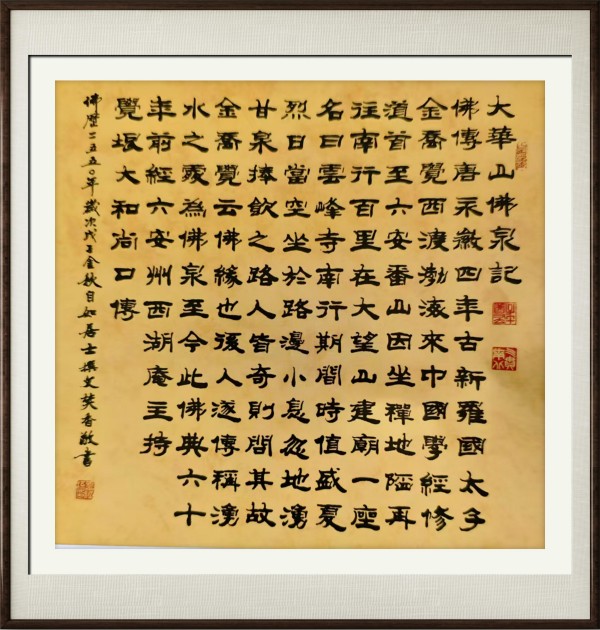 大華山佛泉記
佛傳唐永徽四年古新羅國太子
金喬覺西渡渤海來中國學經修
道首至六安番山因坐禪地隘再
往南行百里在大望山建廟一座
名曰雲峰寺南行期間時值盛夏
烈日當空坐於路邊小息忽地湧
甘泉捧飲之路人皆奇則問其故
金喬覺云佛緣也後人遂傳稱湧
水之處為佛泉至今此佛典六十
年前經六安州西湖庵主持
覺垠大和尚口傳
佛歷二五五〇年歲次戊子金秋自如居士撰文敬書